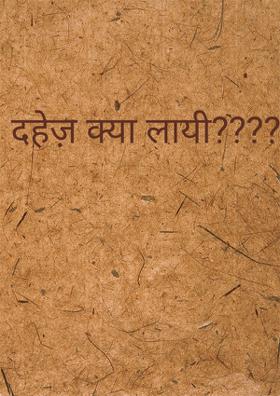 दहेज़ क्या लायी????